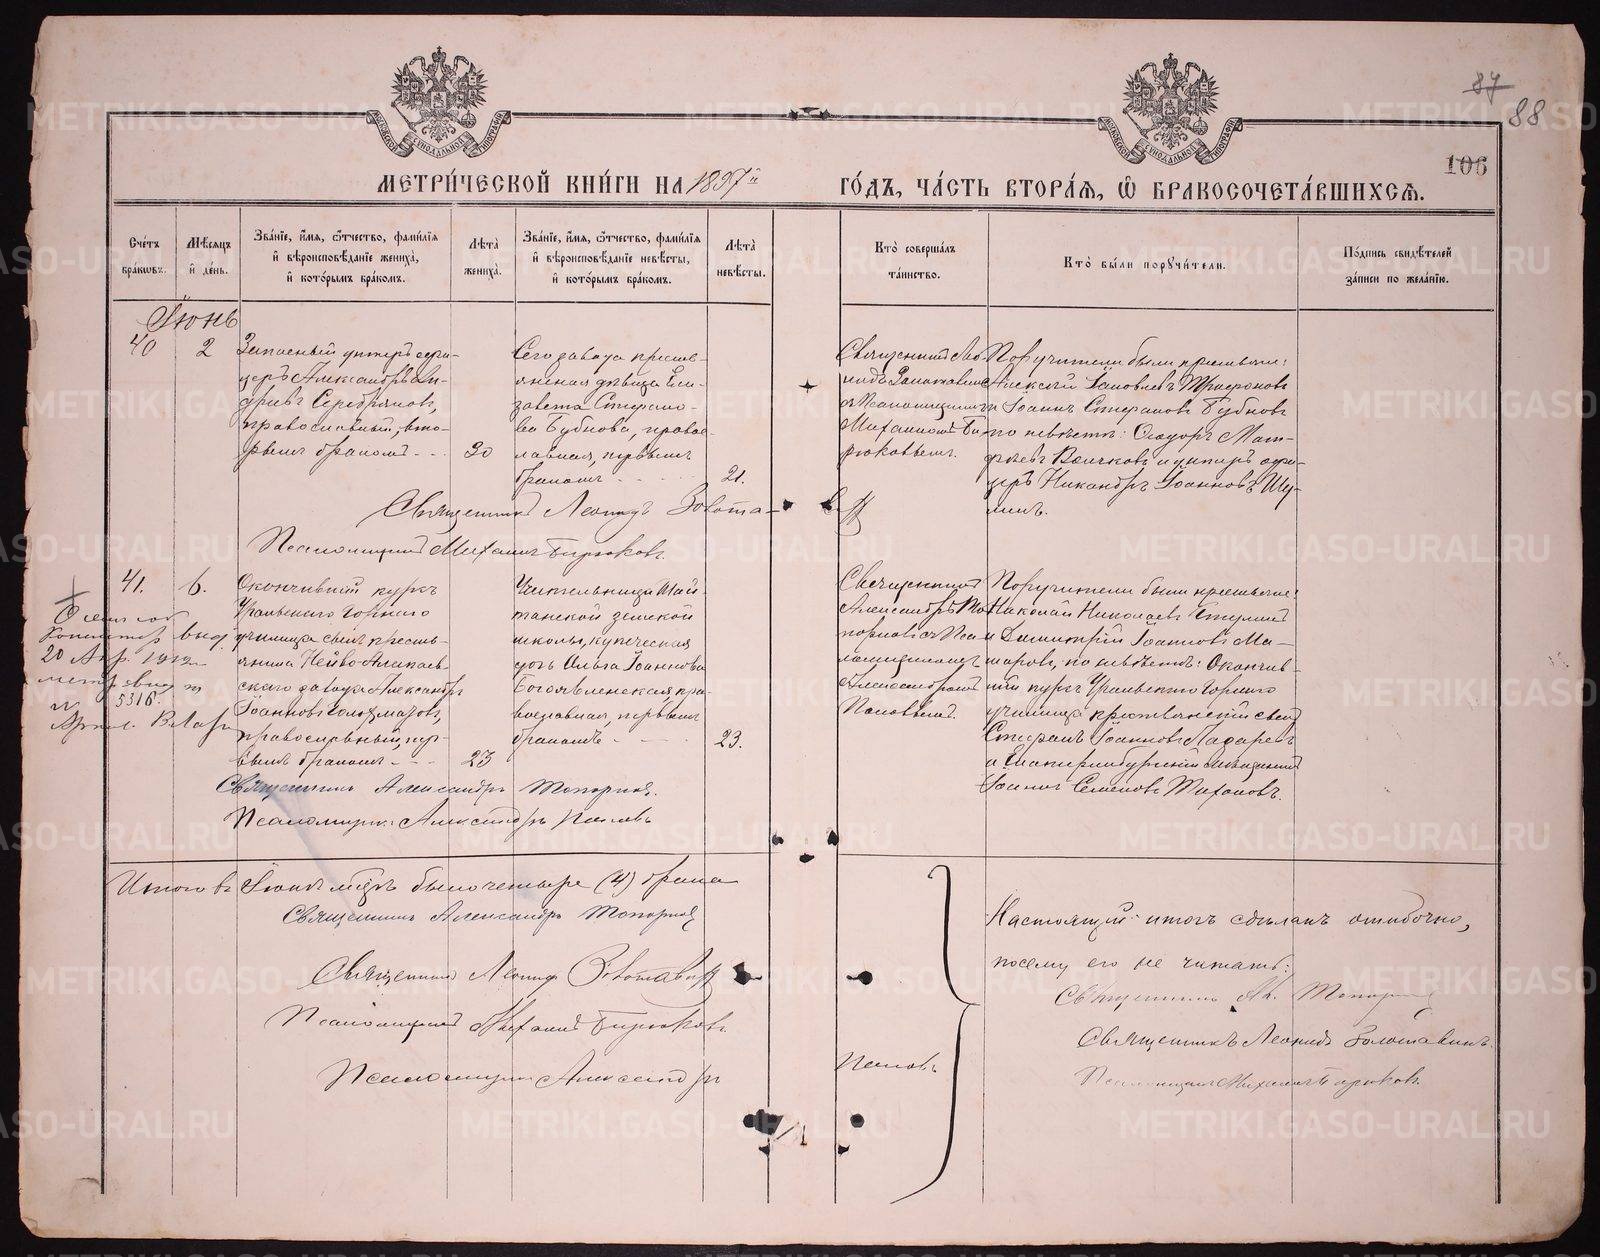 87
88
106
МЕТРИ́ЧЕСКОЙ КНИ́ГИ НА 1897й ГО́ДЪ, ЧА́СТЬ ВТОРА́Ѧ, Ѡ БРАКОСОЧЕТА́ВШИХСѦ.
МОСКОВСКОЙ СѴНОДАЛЬНОЙ ТИПОГРАФІИ
МОСКОВСКОЙ СѴНОДАЛЬНОЙ ТИПОГРАФІИ
Сче́тъ бра́кѡвъ.
Мѣ́сяцъ и҆ де́нь.
Зва́нїе, и҆́мя, ѻ҆́тчество, фами́лїя и҆ вѣроисповѣ́данїе жениха̀, и҆ кото́рымъ бра́комъ.
Лѣ́та жениха̀.
Зва́нїе, и҆́мя, ѻ҆́тчество, фами́лїя и҆ вѣроисповѣ́данїе невѣ́сты, и҆ кото́рымъ бра́комъ.
Лѣ́та невѣ́сты.
Кто̀ соверша́лъ та́инство.
Кто̀ бы́ли порꙋчи́тели.
По́дпись свидѣ́телей за́писи по жела́нїю.
Іюнь
40
2
Запасный унтеръ офи-
церъ Александръ Ан-
дреевъ Серебряковъ,
православный, вто-
рымъ бракомъ
30
Сего завода кресть-
янская дѣвица Ели-
завета Стефано-
ва Бубнова, право-
славная, первымъ
бракомъ
21.
Священникъ Лео-
нидъ Золотавинъ
съ псаломщикомъ
Михаиломъ Би-
рюковымъ.
Поручители были крестьяне:
Алексѣй Іаковлевъ Трифоновъ
и Іоаннъ Стефановъ Бубновъ
по невѣстѣ: Ѳеодоръ Мат-
фѣевъ и унтеръ офи-
церъ Никандръ Іоанновъ Шу-
минъ.
Священникъ Леонидъ Золота-
Псаломщикъ Михаилъ Бирюковъ.
41.
6.
Окончившій курсъ
Уральскаго Горнаго
училища сынъ кресть-
янина Нейво-Алапаев-
скаго завода Александръ
Іоанновъ
православный, пер-
вымъ бракомъ
23
Учительница Шай-
танской земской
школы, купеческая
дочь Ольга Іоаннова
Богоявленская, пра-
вославная, первымъ
бракомъ
23.
Священникъ
Александръ То-
порковъ съ Пса-
ломщикомъ
Александромъ
Поповымъ.
Поручители были крестьяне:
Николай Николаевъ
и Димитрій Іоанновъ Ма-
каровъ, по невѣстѣ: Окончив-
шій курсъ Уральскаго Горнаго
училища крестьянскій сынъ
Стефанъ Іоанновъ Лазаревъ
и Екатеринбургскій мѣщанинъ
Іоаннъ Семеновъ Тихоновъ.
выд.
20 Апр. 1912
5316.
Священникъ Александръ Топорковъ.
Псаломщикъ Александръ Поповъ
Итого въ Іюнѣ мцѣ было четыре (4) брака
Священникъ Александръ Топорковъ
Священникъ Леонидъ Золотавинъ
Псаломщикъ Михаилъ Бирюковъ.
Псаломщикъ Александръ
Поповъ
Настоящій итогъ сдѣланъ ошибочно,
посему его не читать:
Священникъ Ал. Топорковъ
Священникъ Леонидъ Золотавинъ.
Псаломщикъ Михаилъ Бирюковъ.
METRIKI.GASO-URAL.RU